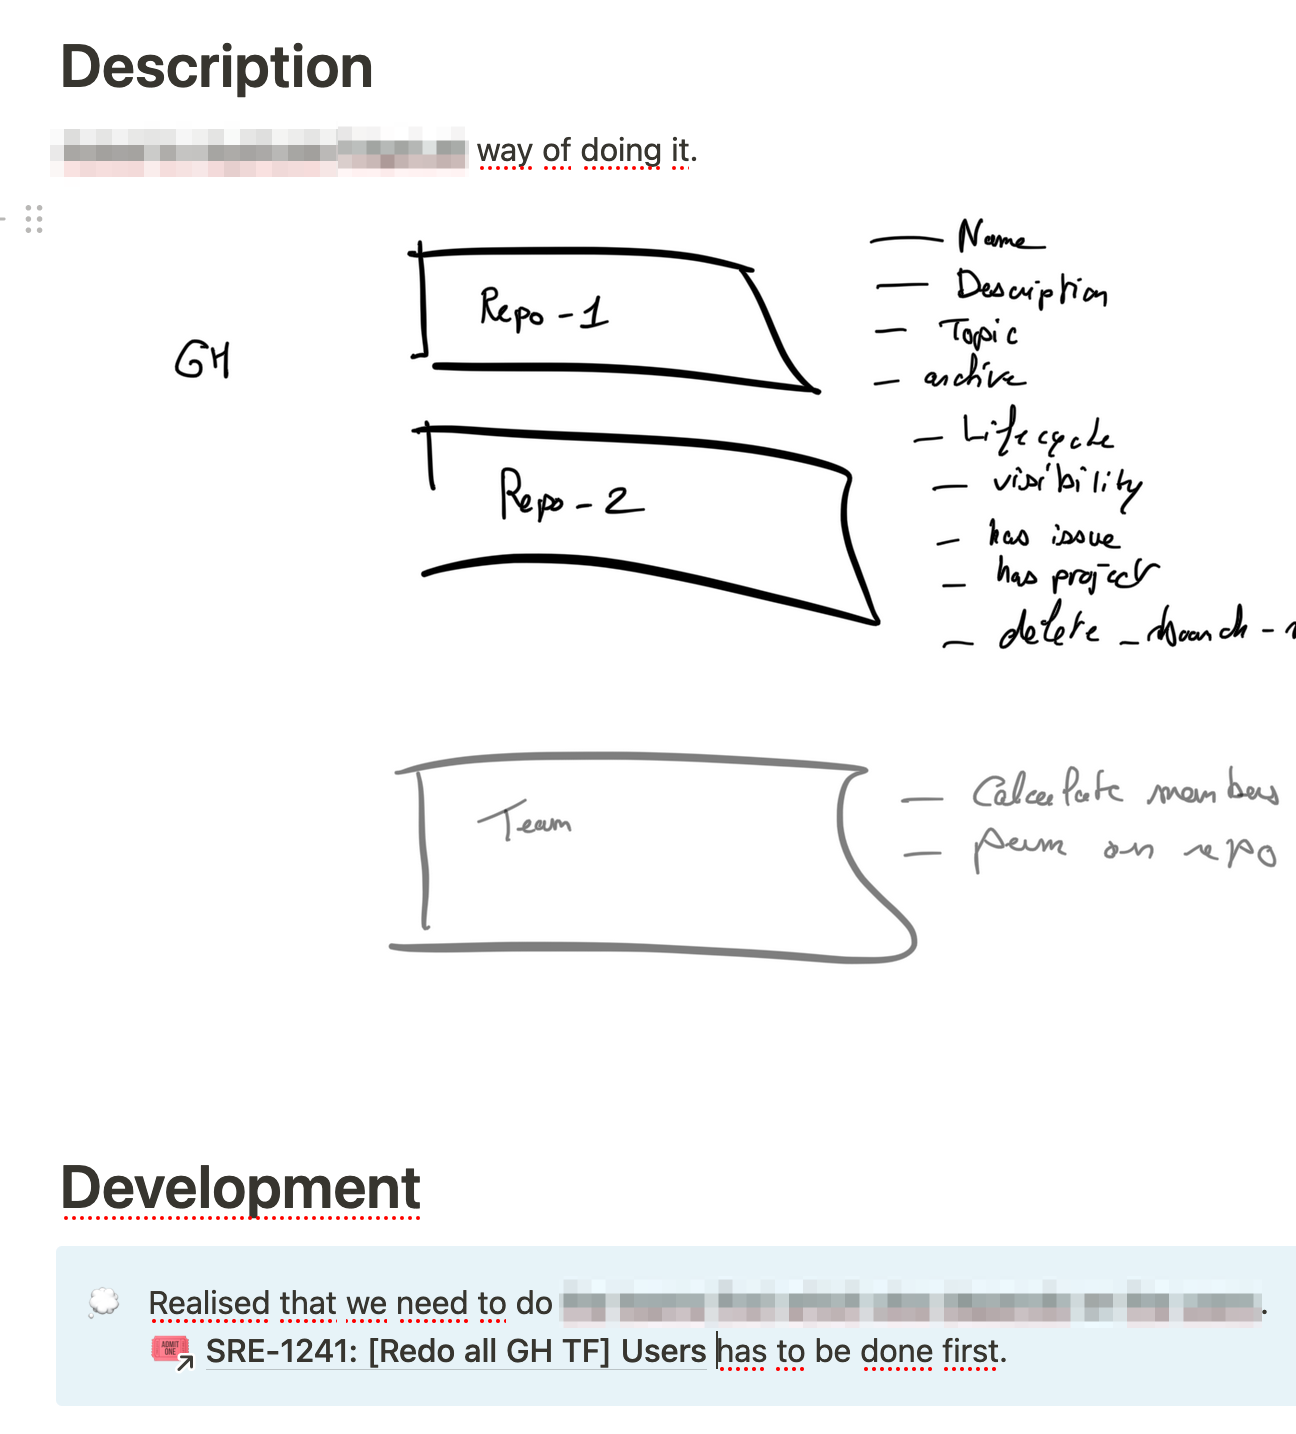 Description
way of doing it.
Name
Description
Repo - 1
Topic
GH
archive
Lifecycle
Repo - 2
visibility
has issue
has project
delete _ branch -
Team
Calculate members
perm on repo
Development
Realised that we need to do .
ADMIT ONE
SRE-1241: [Redo all GH TF] Users has to be done first.